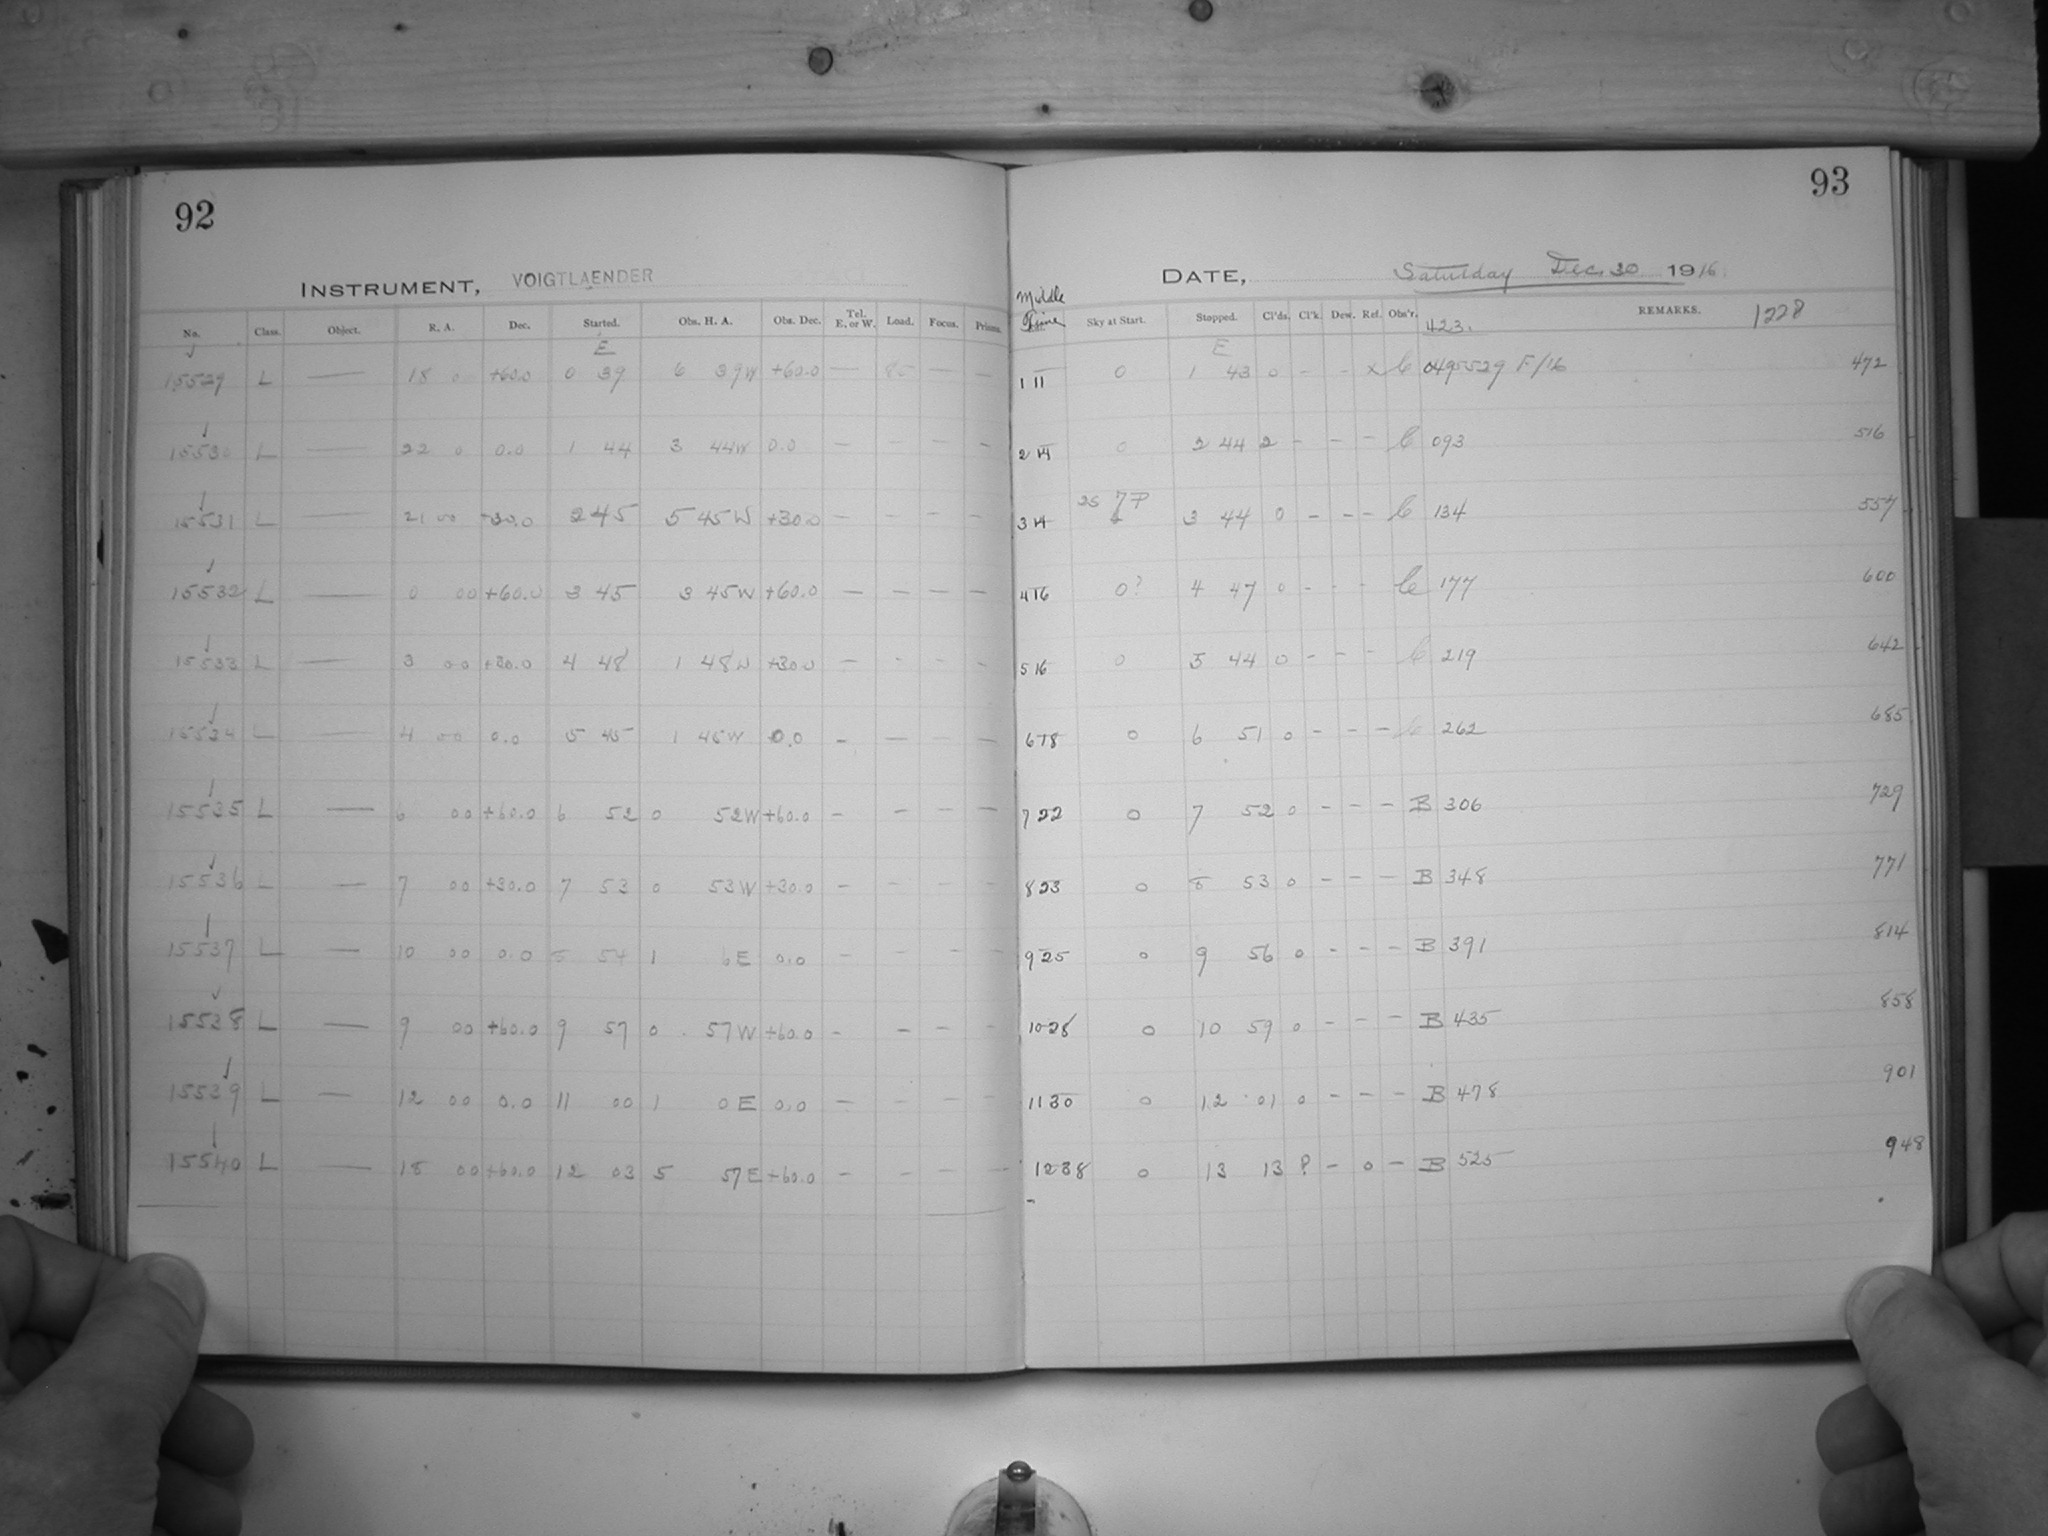 92
93
INSTRUMENT, VOIGTLAENDER
DATE, Saturday Dec. 30 1916
No. Class. Object. R. A. Dec. Started. Obs. H. A. Obs. Dec. Tel. E. or W. Load. Focus. Prisms. Middle Time Sky at Start. Stopped. Cl'ds. Cl'k. Dew. Ref. Obs'r. 423. REMARKS. 1228
E E
15529 L — 18 0 +60.0 0 39 6 39W +60.0 — — — 1 11 0 1 43 0 - - x C F/16 472
15530 L — 22 0 0.0 1 44 3 44W 0.0 — — — — 2 14 0 2 44 2 - - - C 093 516
15531 L — 21 00 +30.0 2 45 5 45W +30.0 — — — — 3 14 3 44 0 - - - C 134 557
15532 L — 0 00 +60.0 3 45 3 45W +60.0 — — — — 4 16 0? 4 47 0 - - - C 177 600
15533 L — 3 00 +30.0 4 48 1 48W +30.0 — — — — 5 16 0 5 44 0 - - - C 219 642
15534 L — 4 00 0.0 5 45 1 45W 0.0 — — — — 6 18 0 6 51 0 - - - C 262 685
15535 L — 6 00 +60.0 6 52 0 52W +60.0 — — — — 7 22 0 7 52 0 - - - B 306 729
15536 L — 7 00 +30.0 7 53 0 53W +30.0 — — — — 8 23 0 8 53 0 - - - B 348 771
15537 L — 10 00 0.0 54 1 6E 0.0 — — — — 9 25 0 9 56 0 - - - B 391 814
15538 L — 9 00 +60.0 9 57 0 57W +60.0 — — — — 10 28 0 10 59 0 - - - B 435 858
15539 L — 12 00 0.0 11 00 1 0E 0.0 — — — — 11 30 0 12 01 0 - - - B 478 901
15540 L — 18 00 +60.0 12 03 5 57E +60.0 — — — — 12 38 0 13 13 ? - 0 - B 525 948